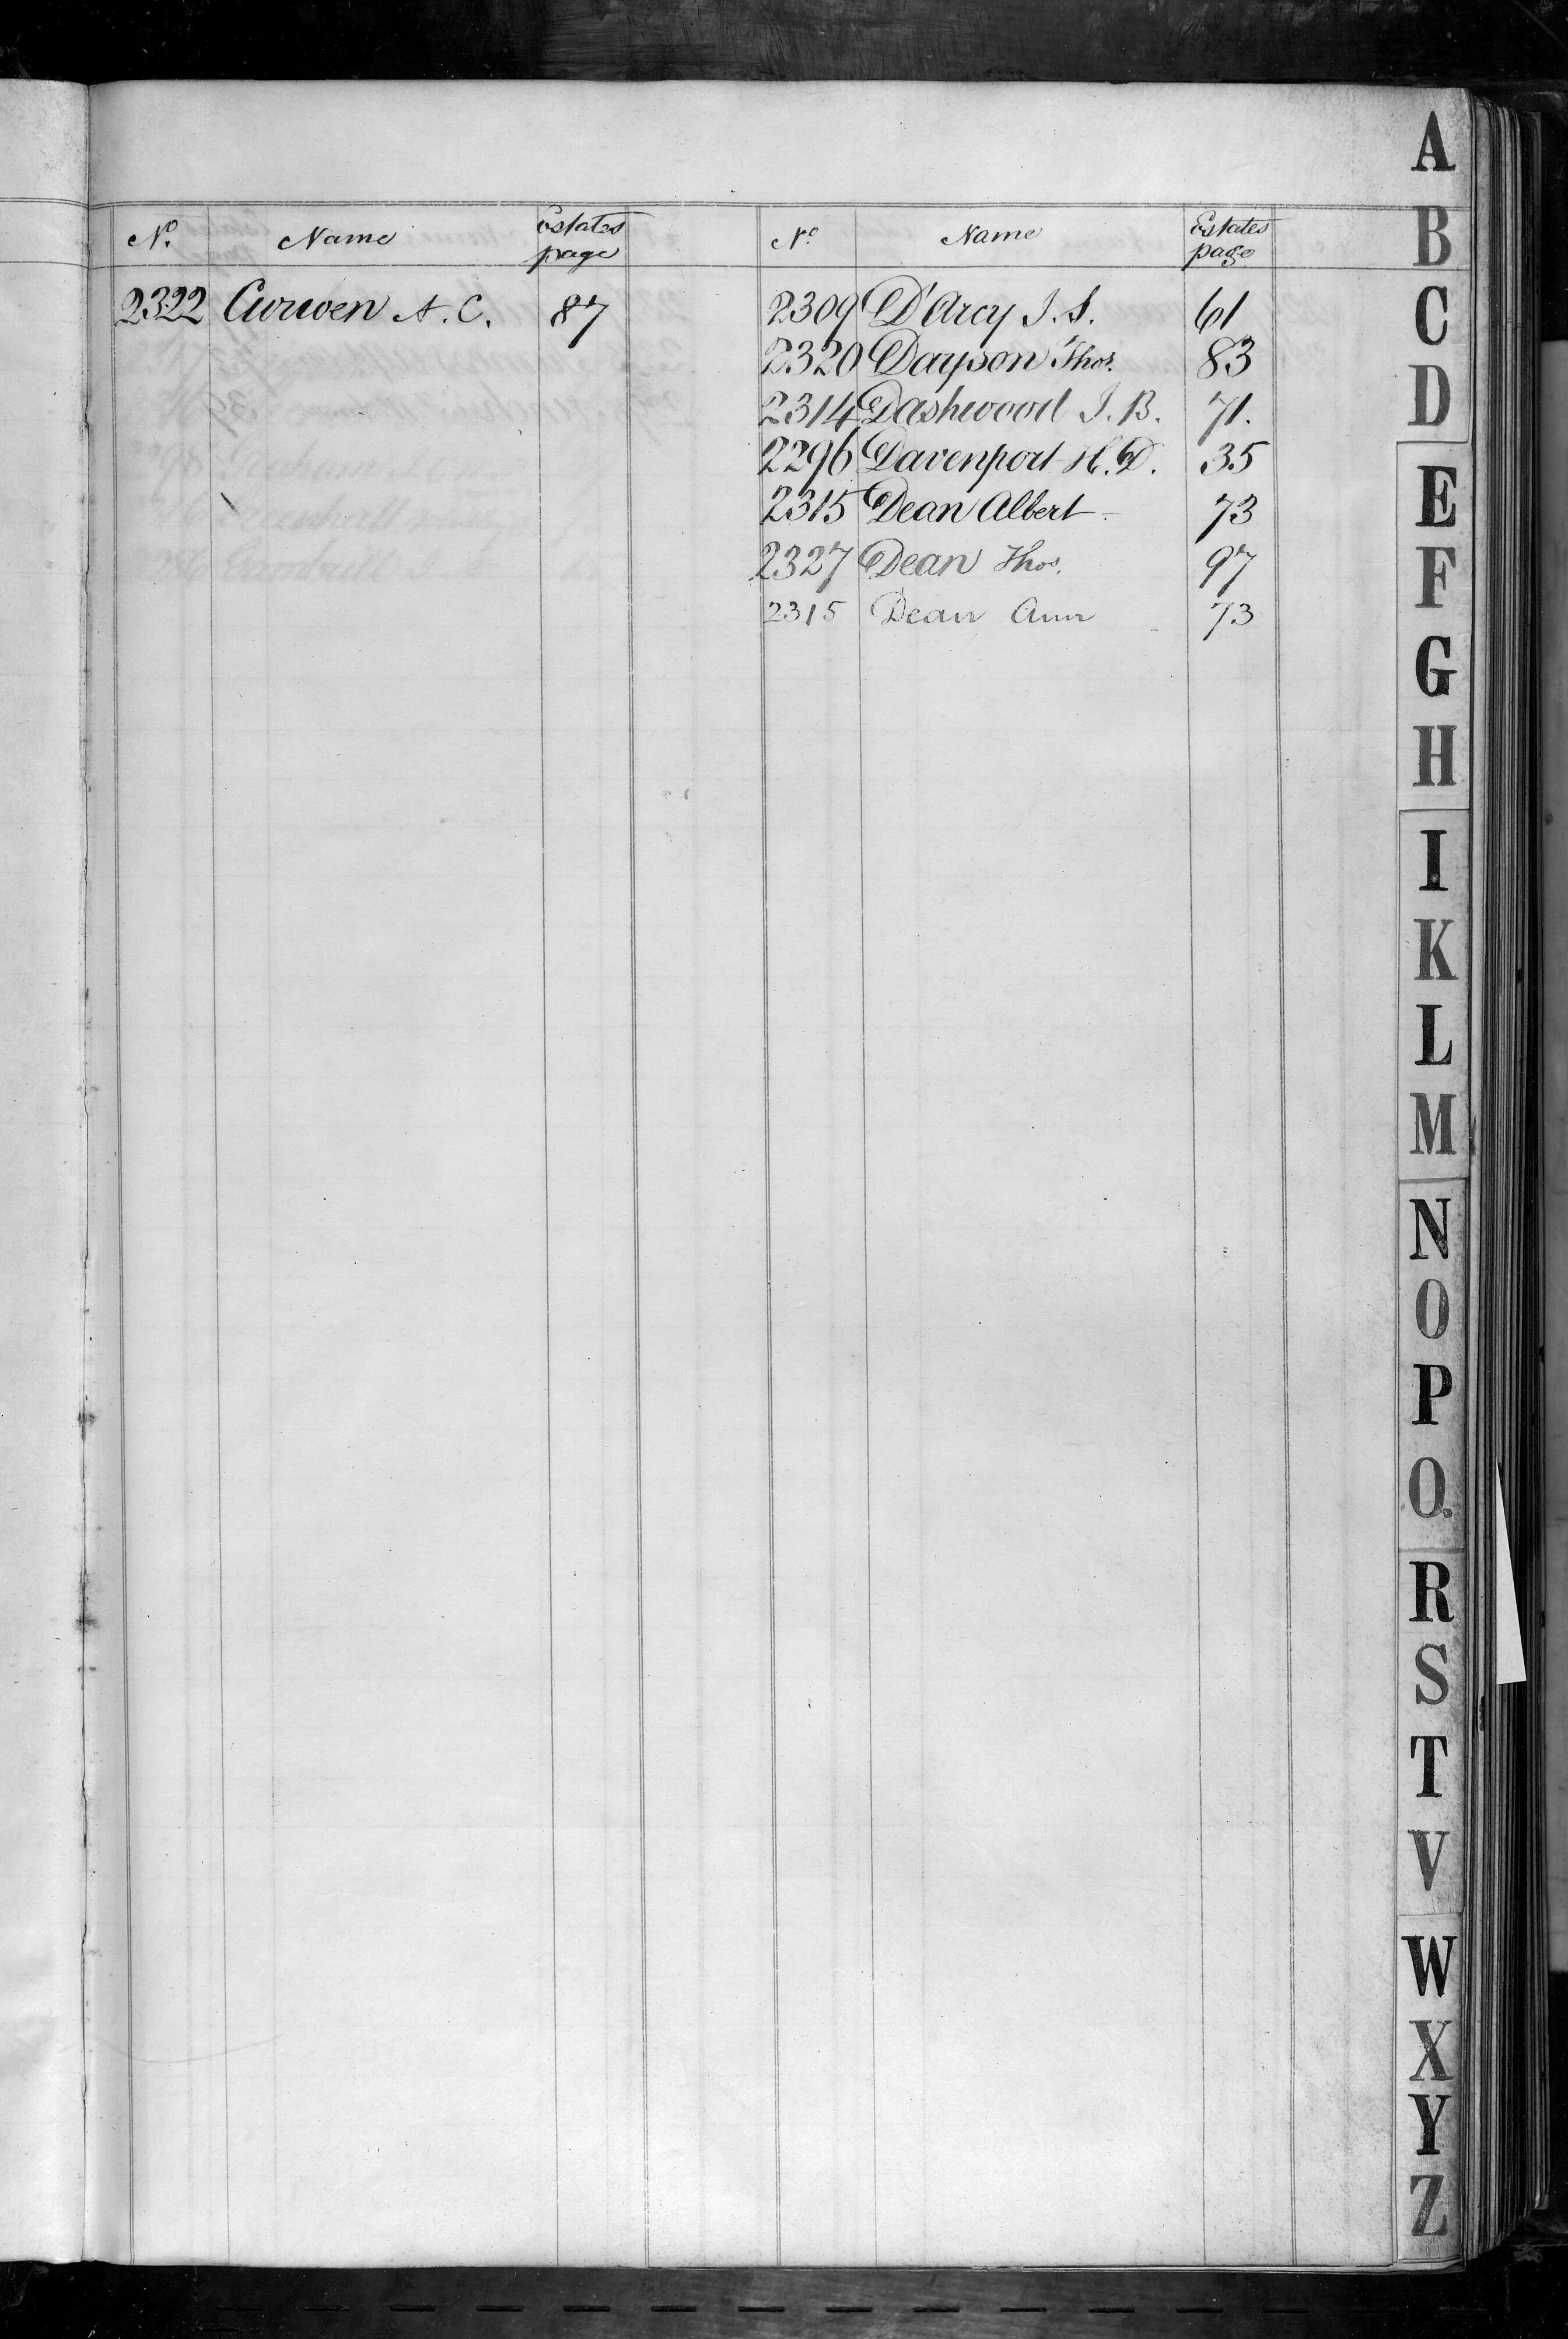 No. Name Estates page
2322 Curwen A. C. 87
No. Name Estates page
2309 D'Arcy J. S. 61
2320 Dayson Thos. 83
2314 Dashwood J. B. 71.
2296 Davenport H. D. 35
2315 Dean Albert 73
2327 Dean Thos. 97
2315 Dean Ann 73
A
B
C
D
E
F
G
H
I
K
L
M
N
O
P
Q
R
S
T
V
W
X
Y
Z